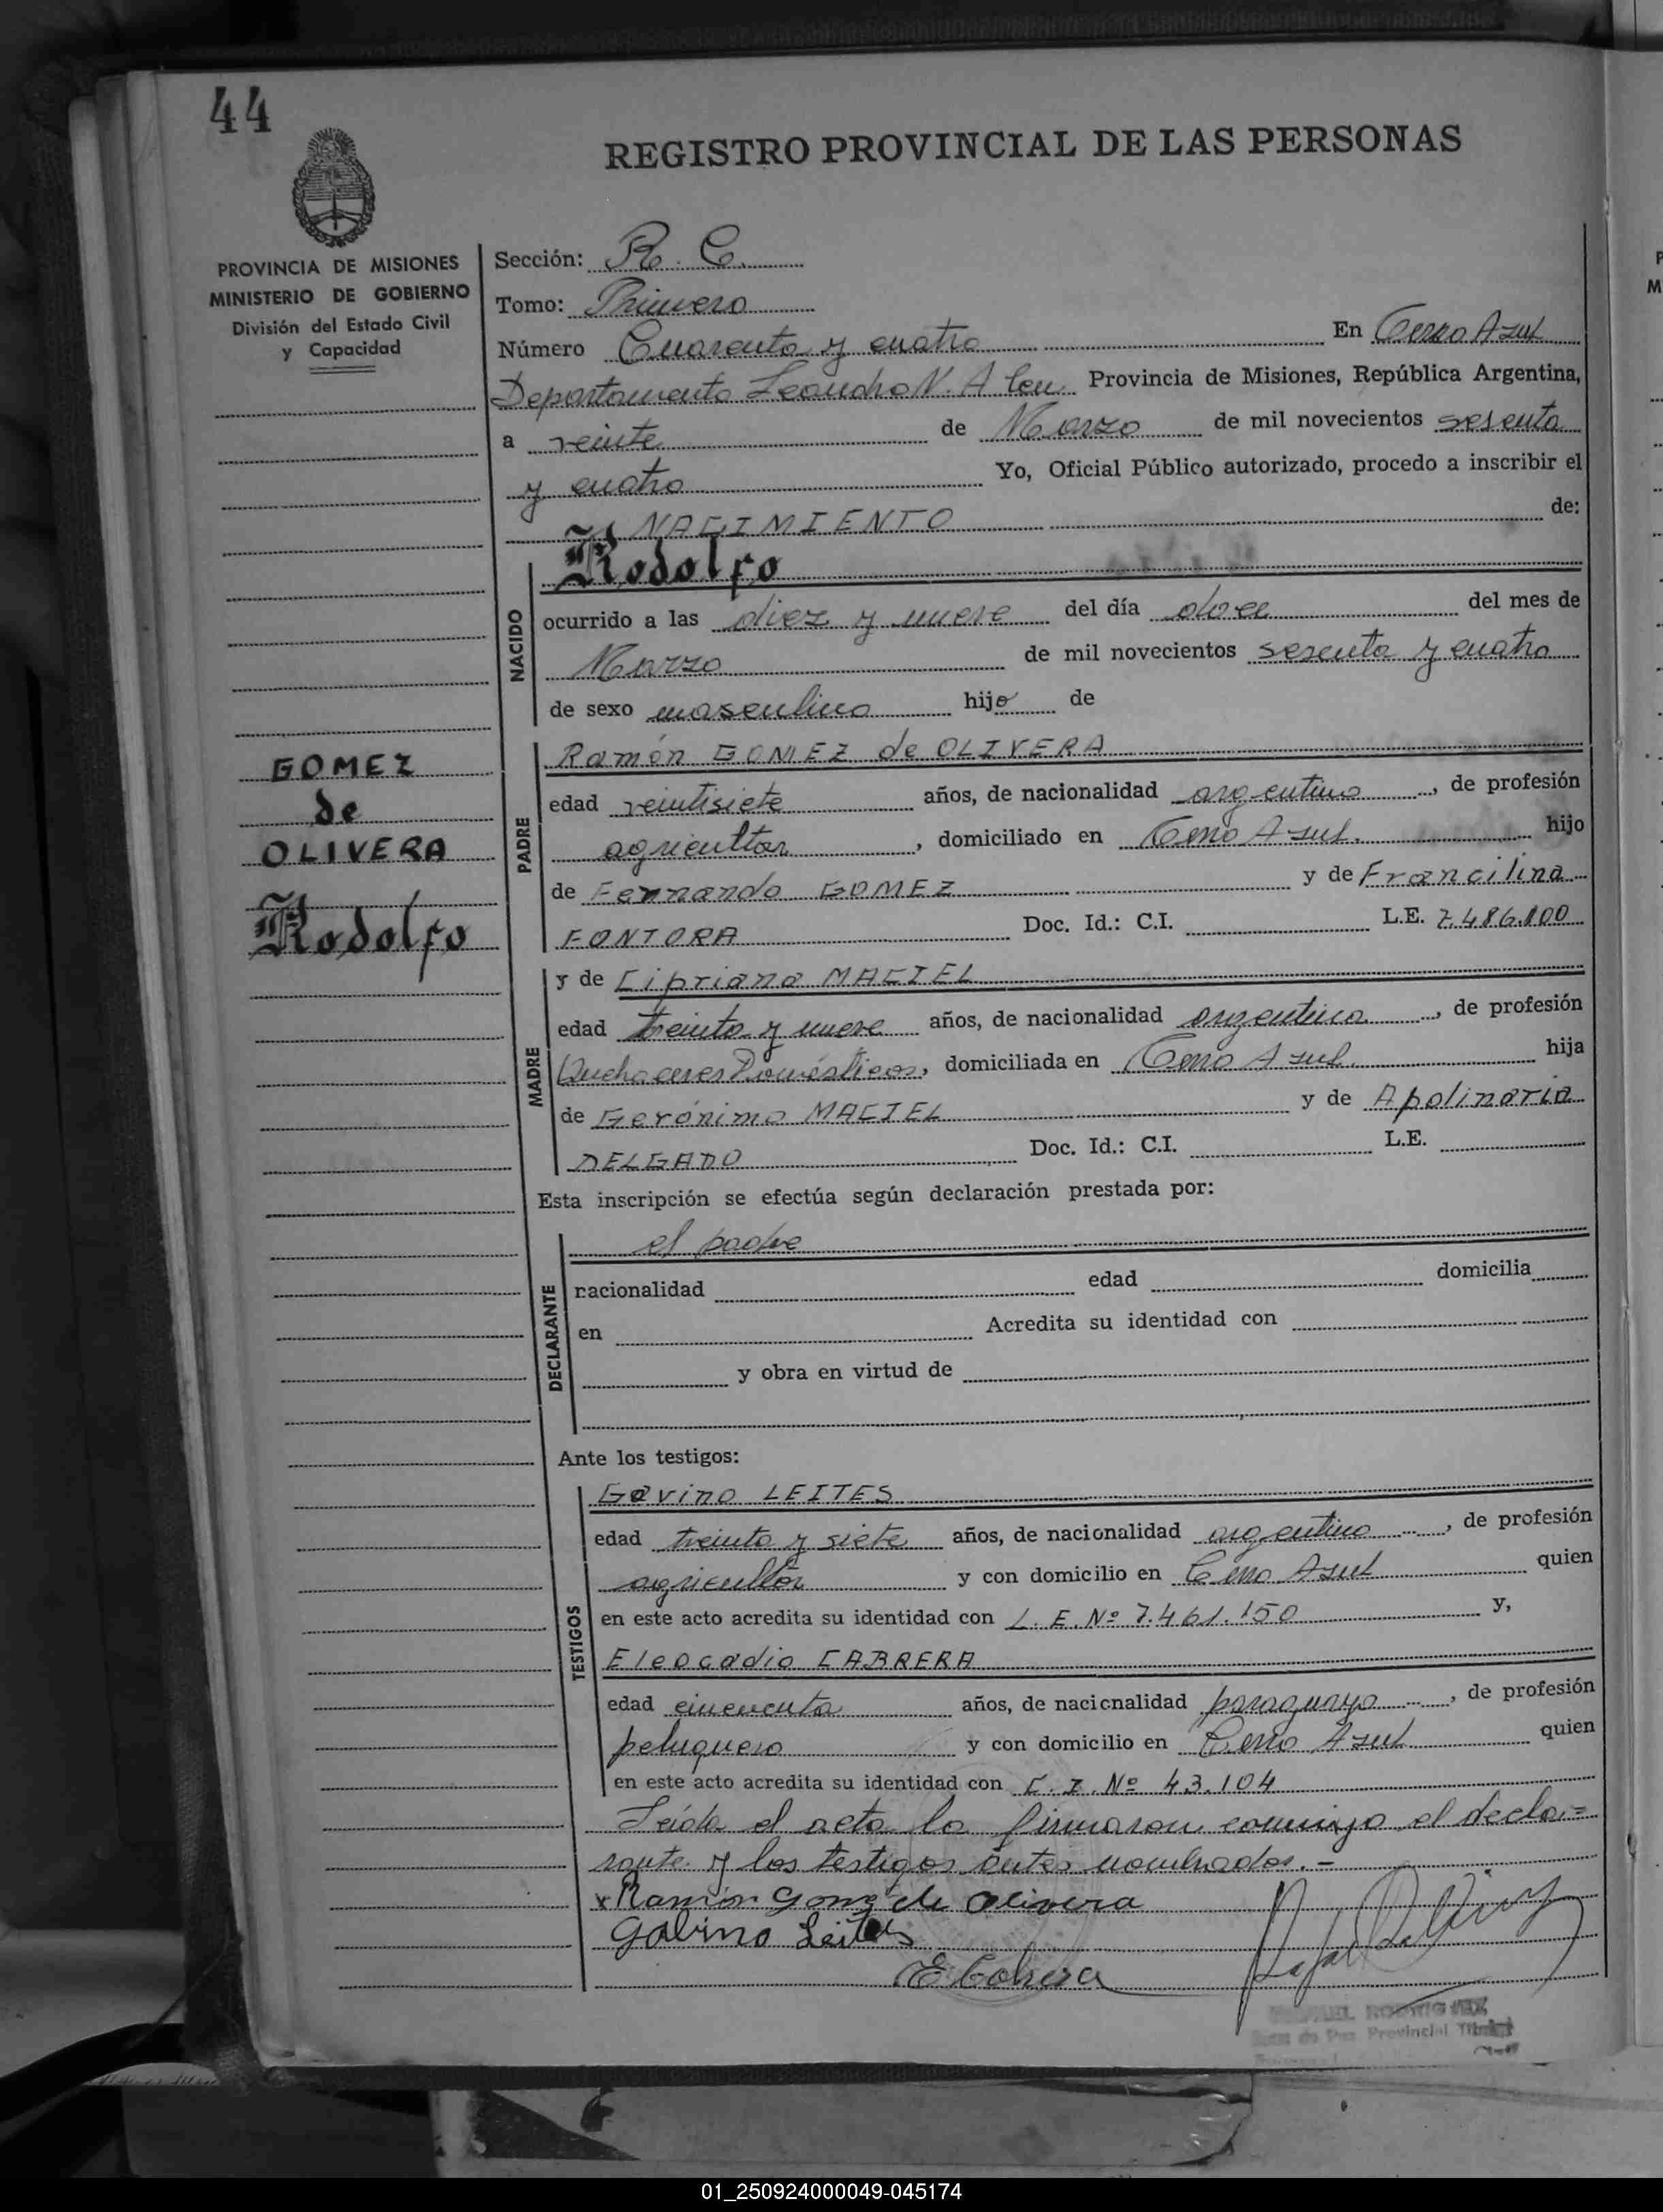 44
REGISTRO PROVINCIAL DE LAS PERSONAS
PROVINCIA DE MISIONES
MINISTERIO DE GOBIERNO
División del Estado Civil
y Capacidad
Sección: R. C.
Tomo: Primero
Número Cuarenta y cuatro En Cerro Azul
Departamento Leandro N. Alem Provincia de Misiones, República Argentina,
a veinte de Marzo de mil novecientos sesenta
y cuatro Yo, Oficial Público autorizado, procedo a inscribir el
NACIMIENTO de:
NACIDO
Rodolfo
ocurrido a las diez y nueve del día doce del mes de
Marzo de mil novecientos sesenta y cuatro
de sexo masculino hijo de
GOMEZ
de
OLIVERA
Rodolfo
PADRE
Ramón GOMEZ de OLIVERA
edad veintisiete años, de nacionalidad argentino, de profesión
agricultor, domiciliado en Cerro Azul. hijo
de Fernando GOMEZ y de Francilina
FONTORA Doc. Id.: C.I. L.E. 7.486.100
MADRE
y de Cipriana MACIEL
edad treinta y nueve años, de nacionalidad argentina, de profesión
Quehaceres Domésticos, domiciliada en Cerro Azul. hija
de Gerónimo MACIEL y de Apolinaria
DELGADO Doc. Id.: C.I. L.E.
Esta inscripción se efectúa según declaración prestada por:
DECLARANTE
el padre
nacionalidad edad domicilia
en Acredita su identidad con
y obra en virtud de
Ante los testigos:
TESTIGOS
Gavino LEITES
edad treinta y siete años, de nacionalidad argentino, de profesión
agricultor y con domicilio en Cerro Azul quien
en este acto acredita su identidad con L. E. Nº 7.461.150 y,
Eleocadio CABRERA
edad cincuenta años, de nacionalidad paraguayo, de profesión
peluquero y con domicilio en Cerro Azul quien
en este acto acredita su identidad con C. I. Nº 43.104
Leída el acta la firmaron conmigo el decla=
rante y los testigos antes nombrados.-
x Ramón Gome de Olivera
Gabino Leites
E Cabrera
RODRIGUEZ
Juez de Paz Provincial Titular
01_250924000049-045174